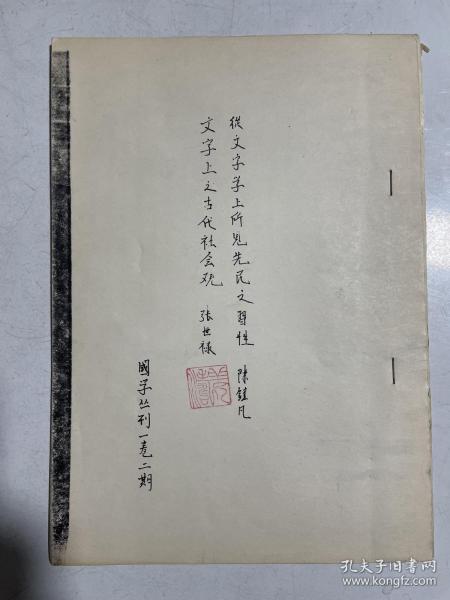 從文字学上所见先民之習性 陳鐘凡
文字上之古代社会观 張世禄
國学丛刊一卷二期
孔夫子旧书网
www.kongfz.com